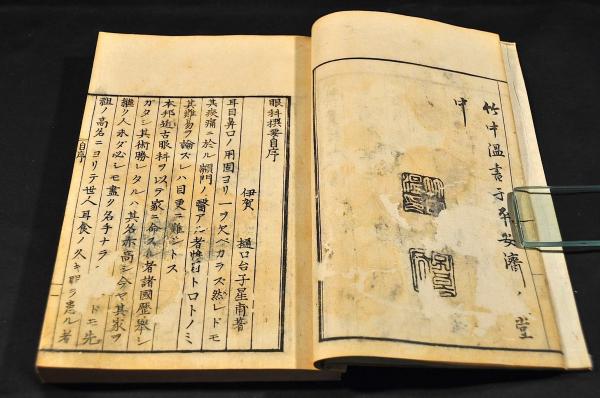 竹中温書于卒安済ノ堂
中
眼科撰要自序
伊賀 樋口台子星甫著
耳目鼻口ノ用固ヨリ一ヲ欠ベカラズ然レドモ
其疾痛ニ於ル顓門ノ醫アル者惟目トロトノミ
其難易ヲ論ズレバ目更ニ難シトス
本邦近古眼科ヲ以テ家ニ命ズル者諸國歴擧シ
ガタシ其術勝レタルハ其名亦高シ今ヤ其家ヲ
継ノ人未ダ必シモ盡ク名手ナラ ドモ先
祖ノ高名ニヨリテ世人耳食ノ久キ ル者
自序